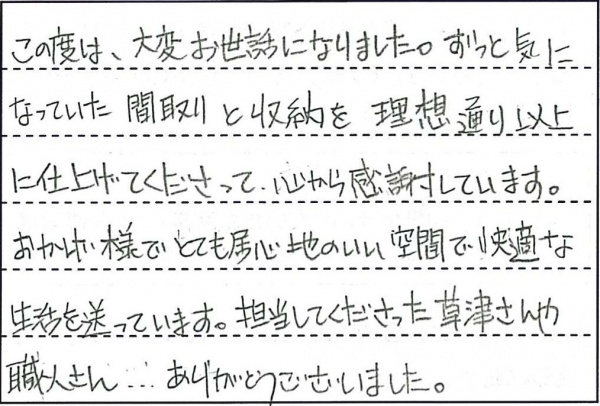 この度は、大変お世話になりました。ずっと気に
なっていた間取りと収納を理想通り以上
に仕上げてくださって、心から感謝しています。
おかげ様でとても居心地のいい空間で快適な
生活を送っています。担当してくださった草津さんや
職人さん…ありがとうございました。